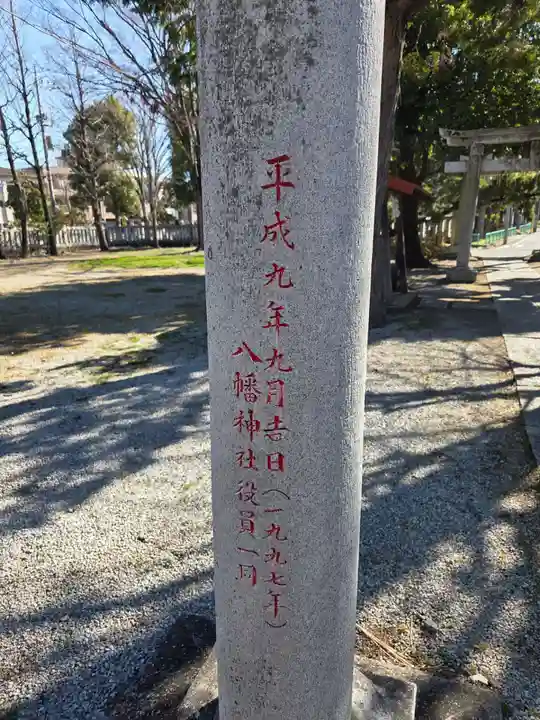 平成九年九月吉日（一九九七年）
八幡神社役員一同